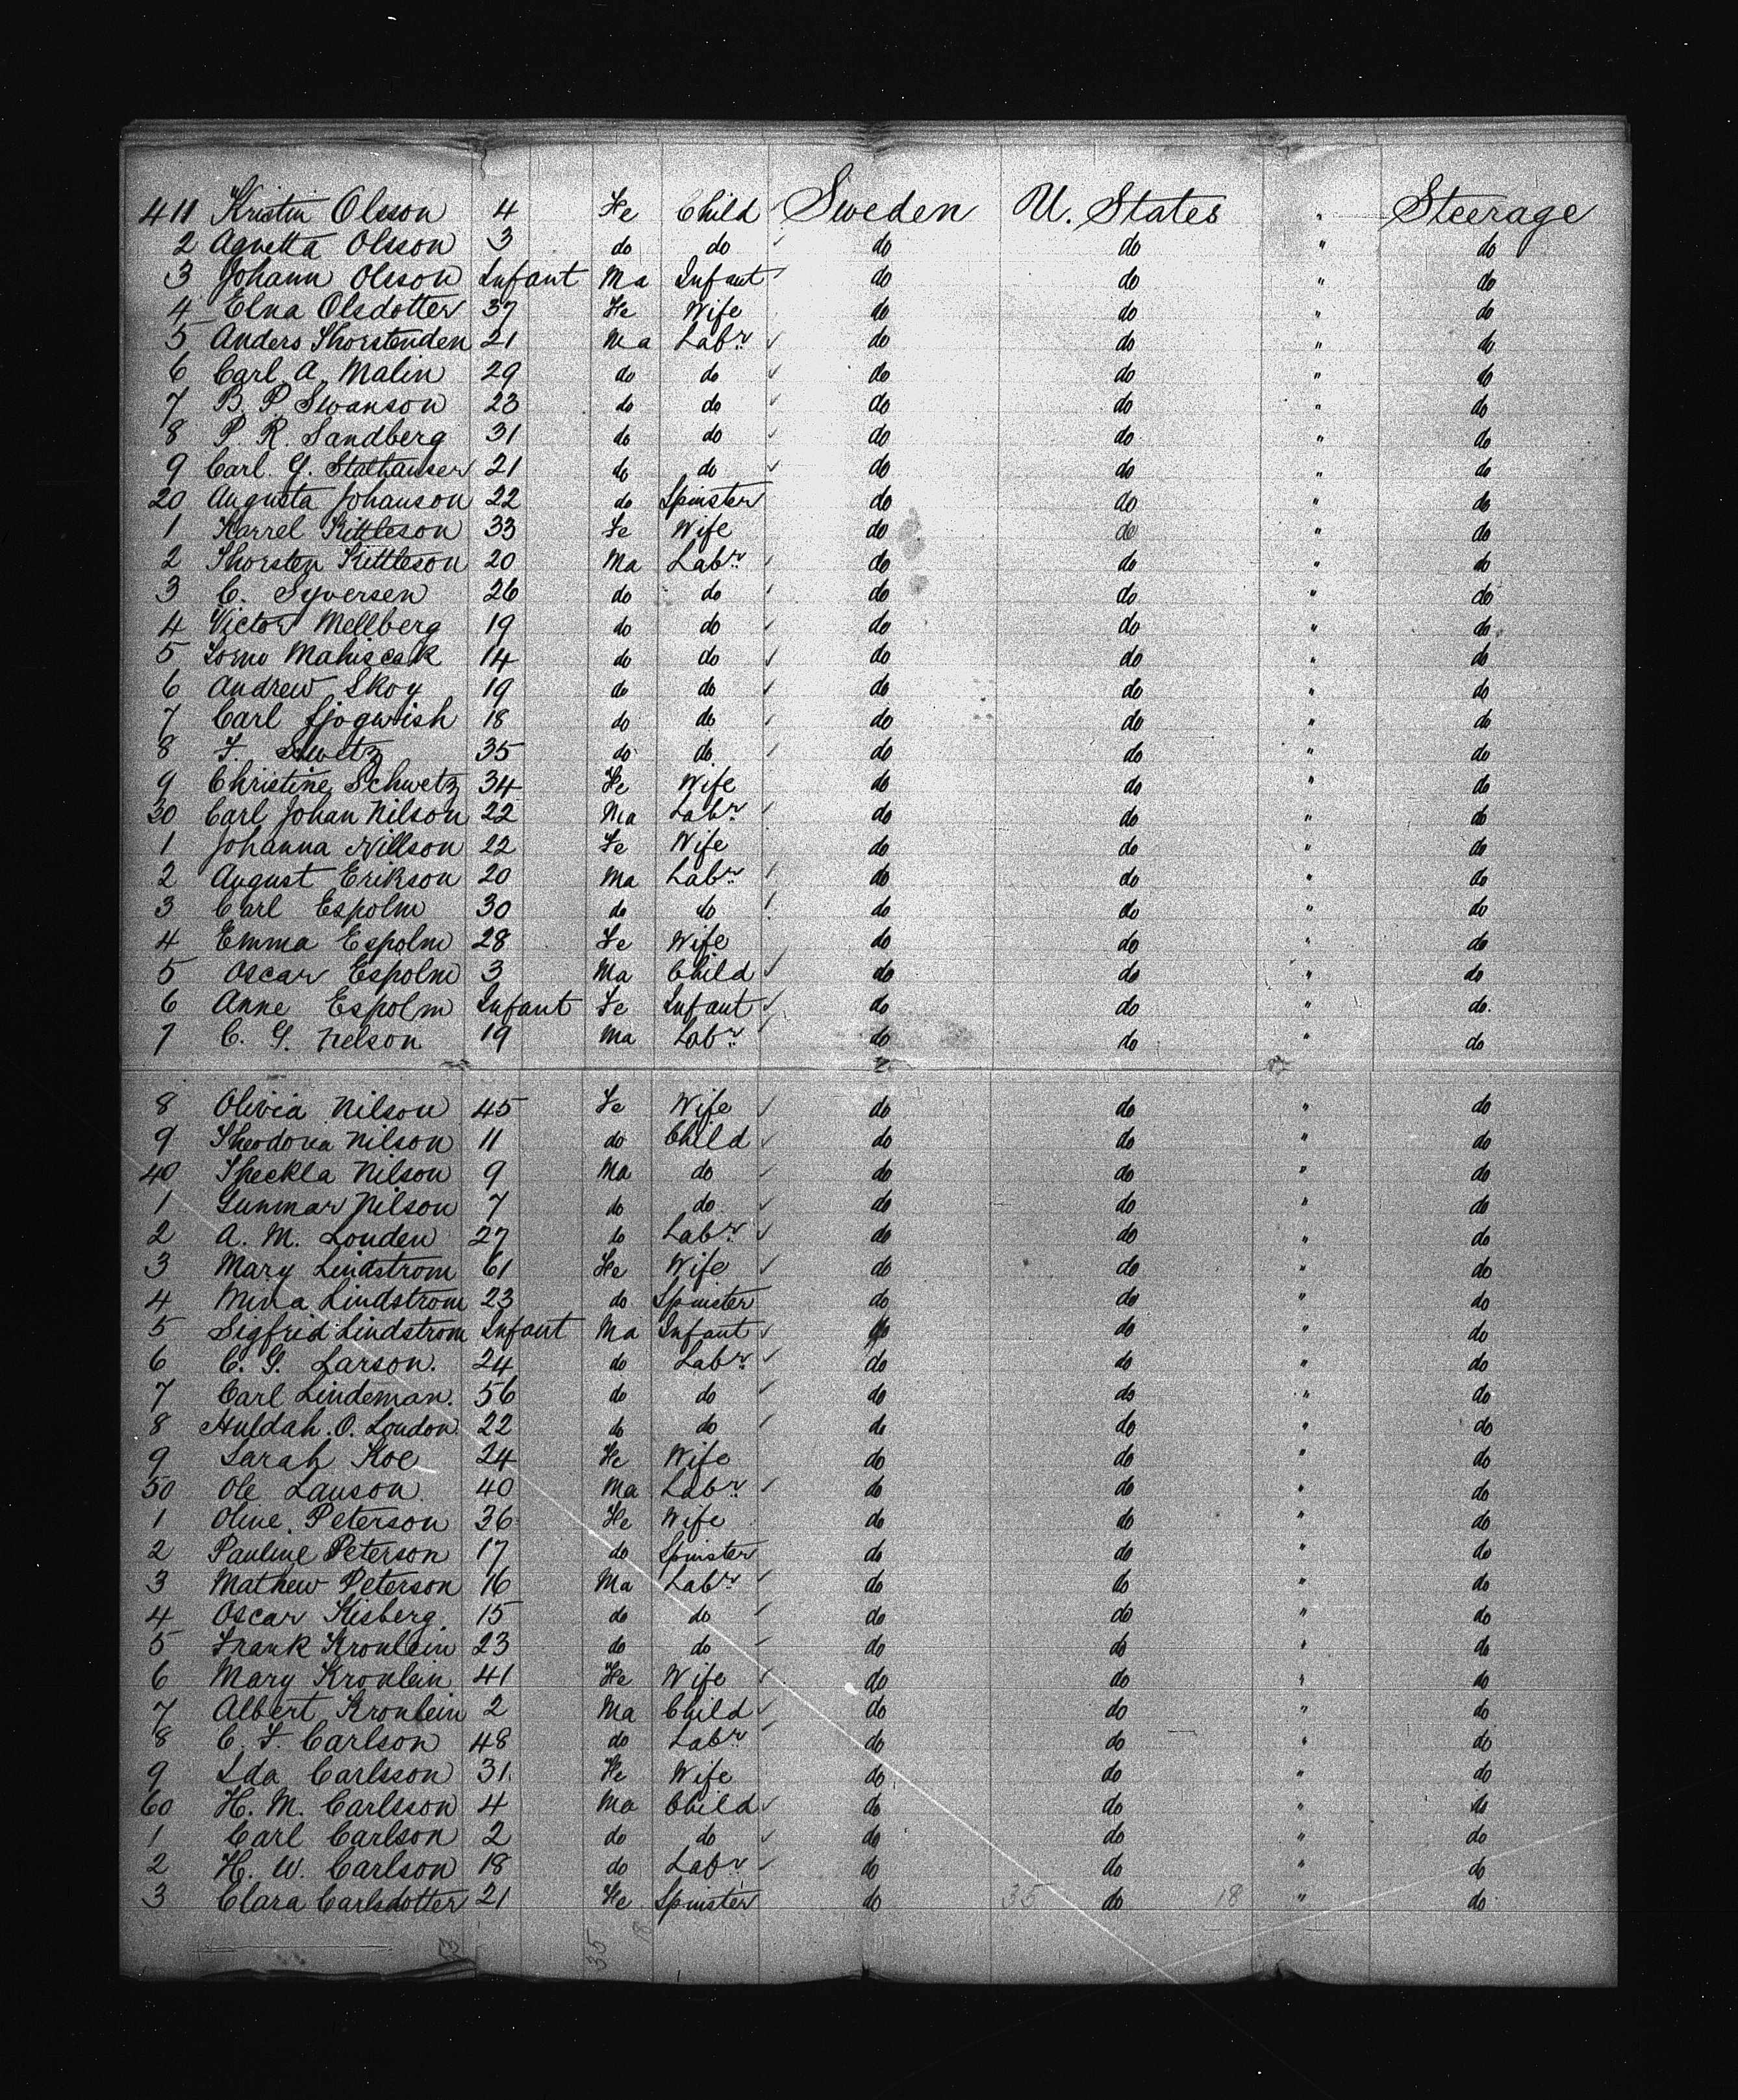 411 Kristin Olsson 4 Fe Child Sweden U. States " Steerage
2 Agnetta Olsson 3 do do do do " do
3 Johann Olsson Infant Ma Infant do do " do
4 Elna Olsdotter 37 Fe Wife do do " do
5 Anders Thorstenden 21 Ma Labr do do " do
6 Carl A. Malin 29 do do do do " do
7 B. P. Swanson 23 do do do do " do
8 P. R. Sandberg 31 do do do do " do
9 Carl. G. Stalhauser 21 do do do do " do
20 Augusta Johanson 22 do Spinster do do " do
1 Karrel Kittleson 33 Fe Wife do do " do
2 Thorsten Kittleson 20 Ma Labr do do " do
3 C. Syversen 26 do do do do " do
4 Victor Mellberg 19 do do do do " do
5 14 do do do do " do
6 Andrew Skoy 19 do do do do " do
7 Carl Sjogwish 18 do do do do " do
8 F. Schwetz 35 do do do do " do
9 Christine Schwetz 34 Fe Wife do do " do
30 Carl Johan Nilson 22 Ma Labr do do " do
1 Johanna Nillson 22 Fe Wife do do " do
2 August Erikson 20 Ma Labr do do " do
3 Carl Espolm 30 do do do do " do
4 Emma Espolm 28 Fe Wife do do " do
5 Oscar Espolm 3 Ma Child do do " do
6 Anne Espolm Infant Fe Infant do do " do.
7 C. G. Nelson 19 Ma Labr do do " do
8 Olivia Nilson 45 Fe Wife do do " do
9 Theodoria Nilson 11 do Child do do " do
40 Theckla Nilson 9 Ma do do do " do
1 Gunmar Nilson 7 do do do do " do
2 A. M. Londen 27 do Labr do do " do
3 Mary Lindstrom 61 Fe Wife do do " do
4 Mina Lindstrom 23 do Spinster do do " do
5 Sigfrid Lindstrom Infant Ma Infant do do " do
6 C. G. Larson. 24 do Labr do do " do
7 Carl Lindeman. 56 do do do do " do
8 Huldah. O. London. 22 do do do do " do
9 Sarah Koe 24 Fe Wife do do " do
50 Ole Lauson. 40 Ma Labr do do " do
1 Oline. Peterson 36 Fe Wife do do " do
2 Pauline Peterson 17 do Spinster do do " do
3 Mathew Peterson 16 Ma Labr do do " do
4 Oscar Kisberg. 15 do do do do " do
5 Frank Kronlein 23 do do do do " do
6 Mary Kronlein 41 Fe Wife do do " do
7 Albert Kronlein 2 Ma Child do do " do
8 C. F. Carlson 48 do Labr do do " do
9 Ida Carlsson 31. Fe Wife do do " do
60 H. M. Carlsson 4 Ma Child do do " do
1 Carl Carlson 2 do do do do " do
2 H. W. Carlson 18 do Labr do do " do
3 Clara Carlsdotter 21 Fe Spinster do 35 do 18 " do
35